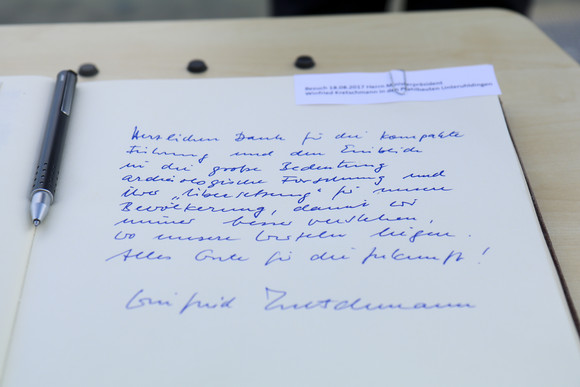 Besuch 18.08.2017 Herrn Ministerpräsident
Winfried Kretschmann in den Pfahlbauten Unteruhldingen
Herzlichen Dank für die kompakte
Führung und den Einblick
in die große Bedeutung
archäologische Forschung und
ihre „Übersetzung" für unsere
Bevölkerung, damit wir
immer besser verstehen,
wo unsere Wurzeln liegen.
Alles Gute für die Zukunft!
Winfried Kretschmann